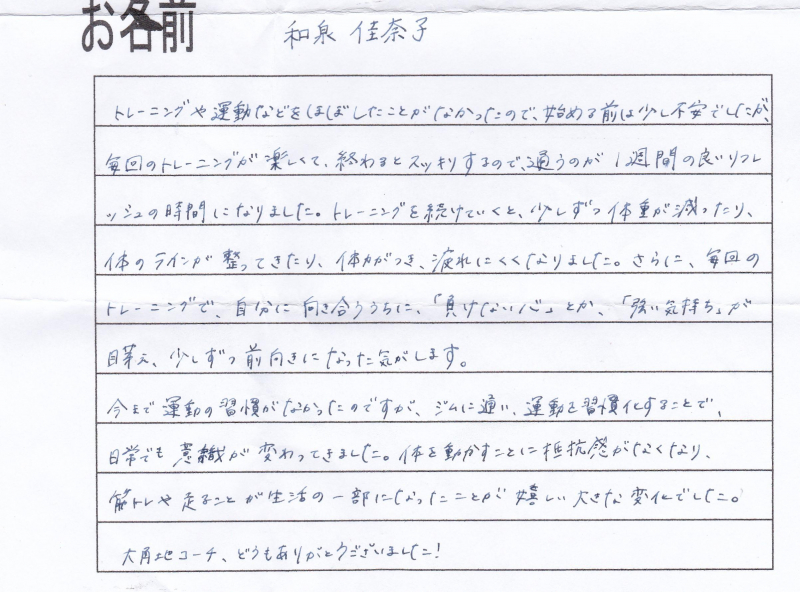 お名前 和泉 佳奈子
トレーニングや運動などをほぼしたことがなかったので、始める前は少し不安でしたが、
毎回のトレーニングが楽しくて、終わるとスッキリするので、通うのが1週間の良いリフレ
ッシュの時間になりました。トレーニングを続けていくと、少しずつ体重が減ったり、
体のラインが整ってきたり、体力がつき、疲れにくくなりました。さらに、毎回の
トレーニングで、自分に向き合ううちに、「負けない心」とか、「強い気持ち」が
目芽え、少しずつ前向きになった気がします。
今まで運動の習慣がなかったのですが、ジムに通い、運動を習慣化することで、
日常でも意識が変わってきました。体を動かすことに抵抗感がなくなり、
筋トレや走ることが生活の一部になったことが嬉しい大きな変化でした。
大角地コーチ、どうもありがとうございました!